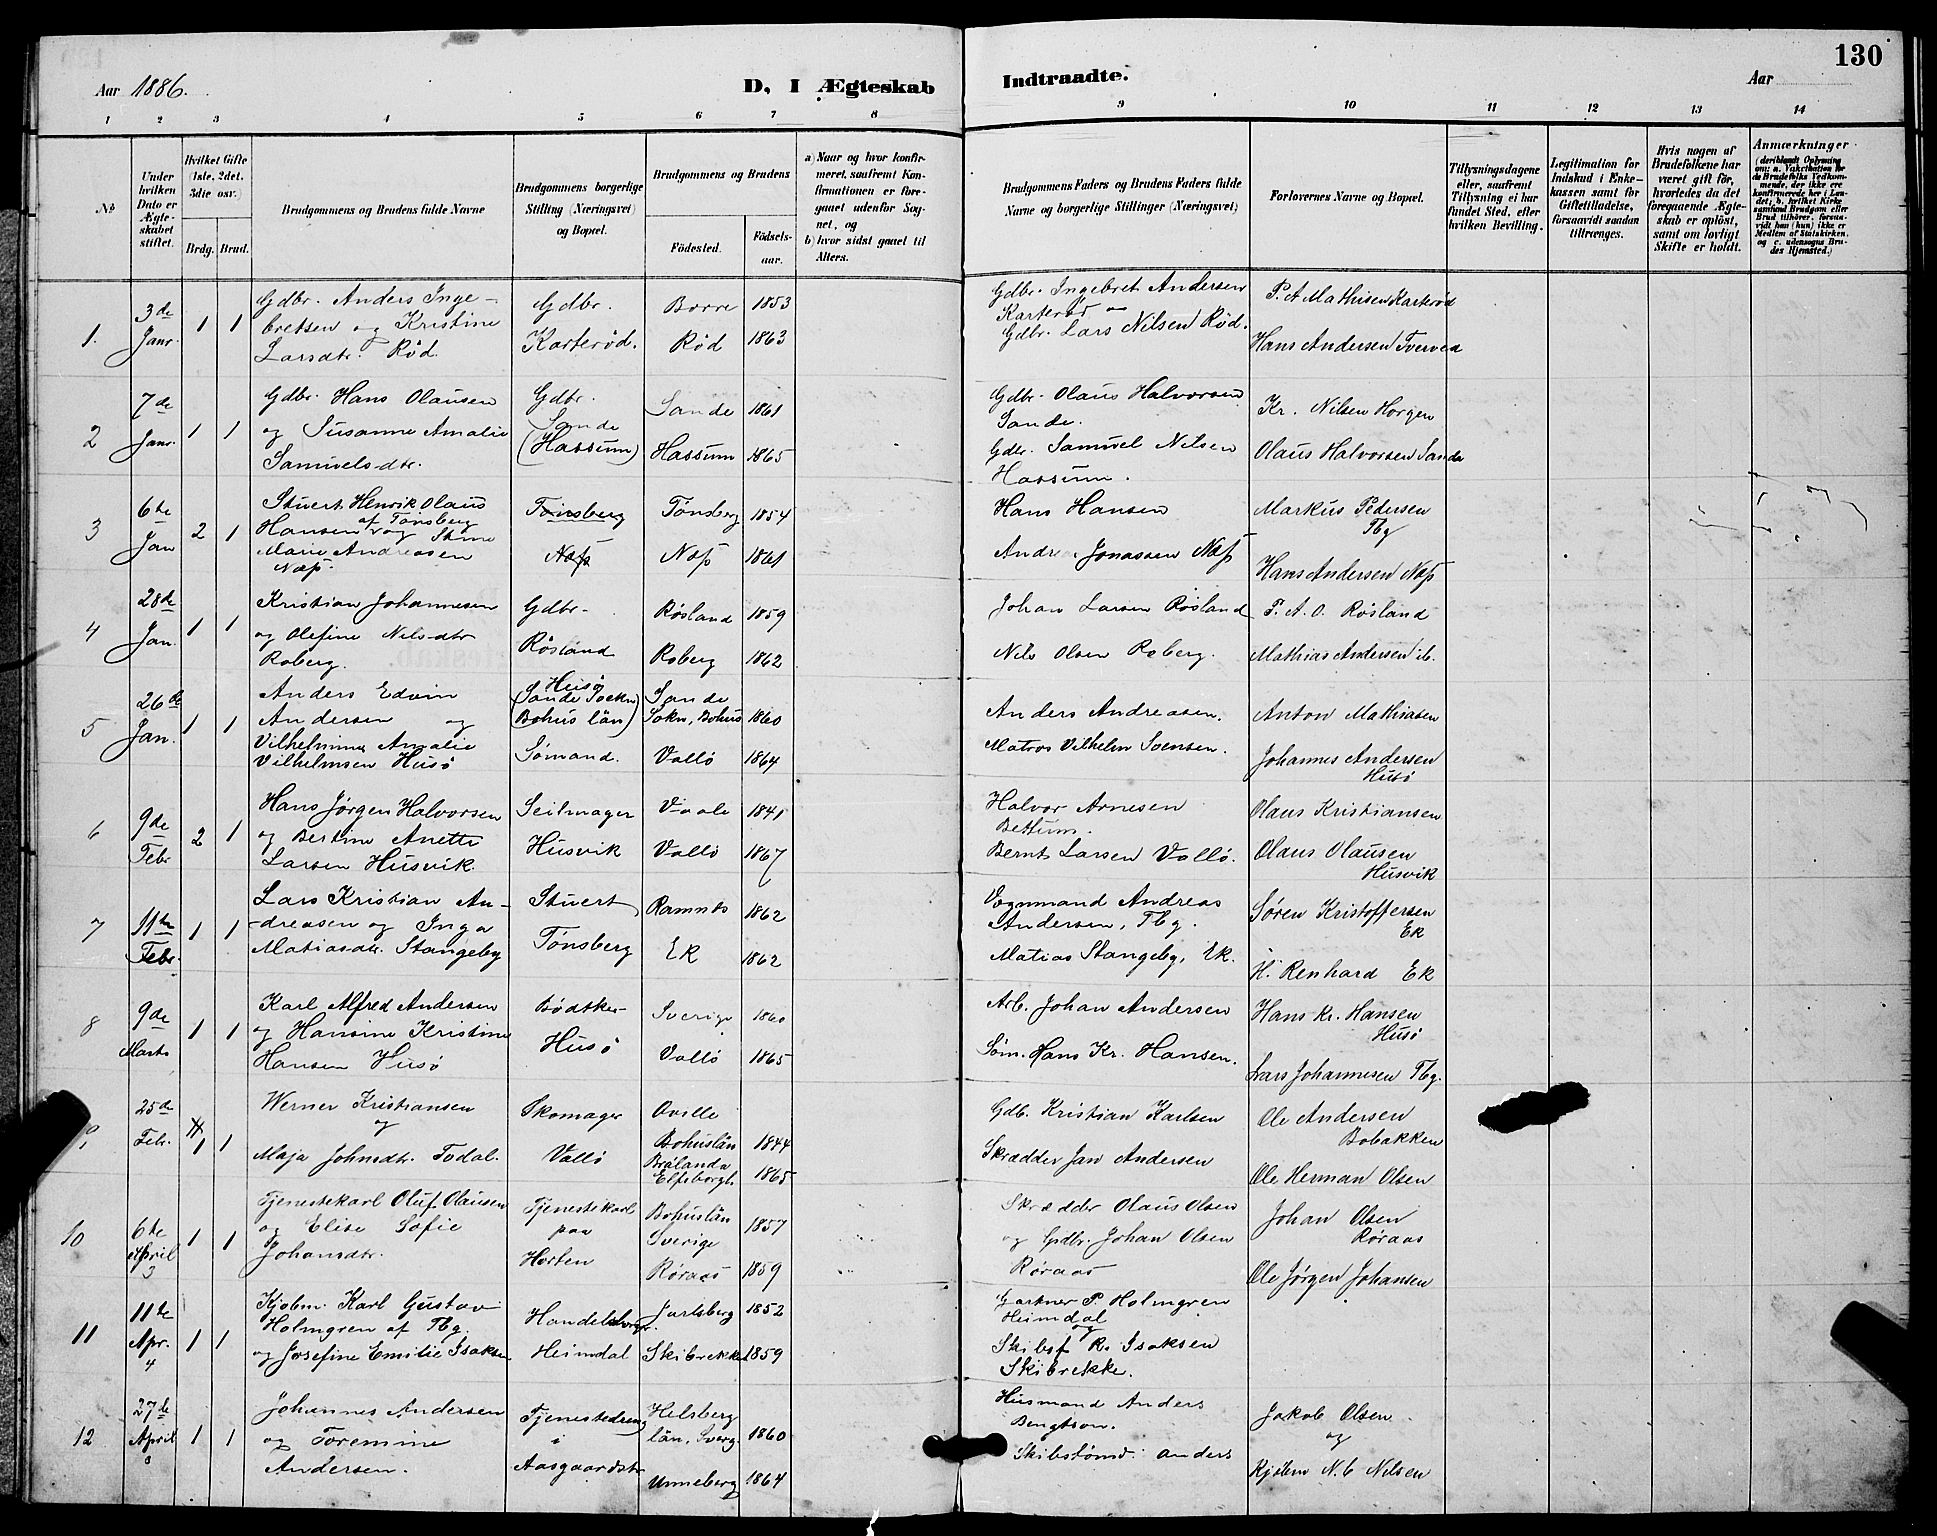 130
Aar 1886.
D, I Ægteskab Indtraadte.
Aar
1 2 3 4 5 6 7 8 9 10 11 12 13 14
No
Under hvilken Dato er Ægteskabet stiftet.
Hvilket Gifte (1ste, 2det, 3die osv.)
Brdg. Brud.
Brudgommens og Brudens fulde Navne
Brudgommens borgerlige Stilling (Næringsvei) og Bopæl.
Brudgommens og Brudens
Fødested.
Fødselsaar.
a) Naar og hvor konfirmeret, saafremt Konfirmationen er foregaaet udenfor Sognet, og
b) hvor sidst gaaet til Alters.
Brudgommens Faders og Brudens Faders fulde Navne og borgerlige Stillinger (Næringsvei)
Forlovernes Navne og Bopæl.
Tillysningsdagene eller, saafremt Tillysning ei har fundet Sted, efter hvilken Bevilling.
Legitimation for Indskud i Enkekassen samt for Giftetilladelse, forsaavidt saadan tiltrænges.
Hvis nogen af Brudefolkene har været gift før, hvorledes da det foregaaende Ægteskab er opløst, samt om lovligt Skifte er holdt.
Anmærkninger
(deriblandt Oplysning om: a. Vakcination for de Brudefolks Vedkommende, der ikke ere konfirmerede her i Landet; b. hvilket Kirkesamfund Brudgom eller Brud tilhører, forsaavidt han (hun) ikke er Medlem af Statskirken, og c. udensogns Brudes Hjemsted.)
1. 3de Janr. 1 1
Gdbr. Anders Inge-
bretsen og Kristine
Larsdtr. Rød.
Gdbr.
Karterød.
Borre 1853
Rød 1863
Gdbr. Ingebret Andersen
Karterød
Gdbr. Lars Nilsen Rød.
P. A Mathisen Karterød
Hans Andersen Tverved
2 7de Janr. 1 1
Gdbr. Hans Olausen
og Susanne Amalie
Samuelsdtr.
Gdbr.
Sande
(Hassum)
Sande 1861
Hassum 1865
Gdbr. Olaus Halvorsen
Sande.
Gdbr. Samuel Nilsen
Hassum.
Kr. Nilsen Horgen
Olaus Halvorsen Sande
3 6te Jan 2 1
Stuert Henrik Olaus
af Tønsberg
Hansen og Stine
Marie Andreasen
Næss.
Tønsberg
Næss
Tønsberg 1854
Næss 1861
Hans Hansen
Andrea Jonassen Næss
Markus Pedersen
Tbg
Hans Andersen Næss
4 28de Jan. 1 1
Kristian Johannesen
og Olefine Nilsdtr
Roberg.
Gdbr.
Røsland
Røsland 1859
Roberg 1862
Johan Larsen Røsland
Nils Olsen Roberg.
P. A. O. Røsland
Mathias Andersen ib.
5 26de Jan. 1 1
Anders Edvin
Andersen og
Vilhelmine Amalie
Vilhelmsen Husø
Husø
(Sande Sockn
Bohus län)
Sømand.
Sande
Sokn, Bohus 1860
Vallø 1864
Anders Andreasen.
Matros Vilhelm Svensen.
Anton Mathiasen
Johannes Andersen
Husø
6 9de Febr 2 1
Hans Jørgen Halvorsen
og Bertine Anette
Larsen Husvik.
Seilmager
Husvik
Vaale 1841
Vallø 1867
Halvor Arnesen
Bettum.
Bernt Larsen Vallø.
Olaus Kristiansen
Olaus Olausen
Husvik
7 11te Febr. 1 1
Lars Kristian An-
dreasen og Inga
Matiasdtr. Stangeby
Stuert
Tønsberg
Ramnes 1862
Ek 1862
Vognmand Andreas
Andersen, Tbg.
Matias Stangeby, Ek.
Søren Kristoffersen
Ek
H. Renhard Ek
8 9de Marts 1 1
Karl Alfred Andersen
og Hansine Kristine
Hansen Husø
Bødtker
Husø
Sverige 1860
Vallø 1865
Arb. Johan Andersen
Søm. Hans Kr. Hansen.
Hans Kr. Hansen
Husø
Lars Johannesen Tbg.
9 25de Febr. 1 1
Werner Kristiansen
og
Maja Johnsdtr. Todal.
Skomager
Vallø
Qville
Bohuslän 1844
Brålanda
Elfsborgl. 1865
Gdb. Kristian Karlsen
Skrædder Jan Andersen
Ole Andersen
Bobakken
Ole Herman Olsen
10 6te April 3 1 1
Tjenestekarl Oluf Olausen
og Elise Sofie
Johansdtr.
Tjenestekarl
paa
Horten
Bohuslän
Sverige 1857
Røraas 1859
Skrædder Olaus Olsen
og Gdbr. Johan Olsen
Røraas
Johan Olsen
Røraas
Ole Jørgen Johansen
11 11te Apr. 4 1 1
Kjøbm. Karl Gustav
Holmgren af Tbg.
og Josefine Emilie Isaksen
Handelsborger.
Heimdal
Jarlsberg 1852
Skibrekke 1859
Gartner P. Holmgren
Heimdal
og
Skibsf R. Isaksen
Skibrekke.
12 27de April 1 1
Johannes Andersen
og Toremine
Andersen.
Tjenestedreng
i
Aasgaardstr
Helsberg
län, Sverg. 1860
Unneberg 1864
Husmand Anders
Bengtson.
Skibstømd. Anders
Jakob Olsen
og
Kjøbm N. C Nilsen